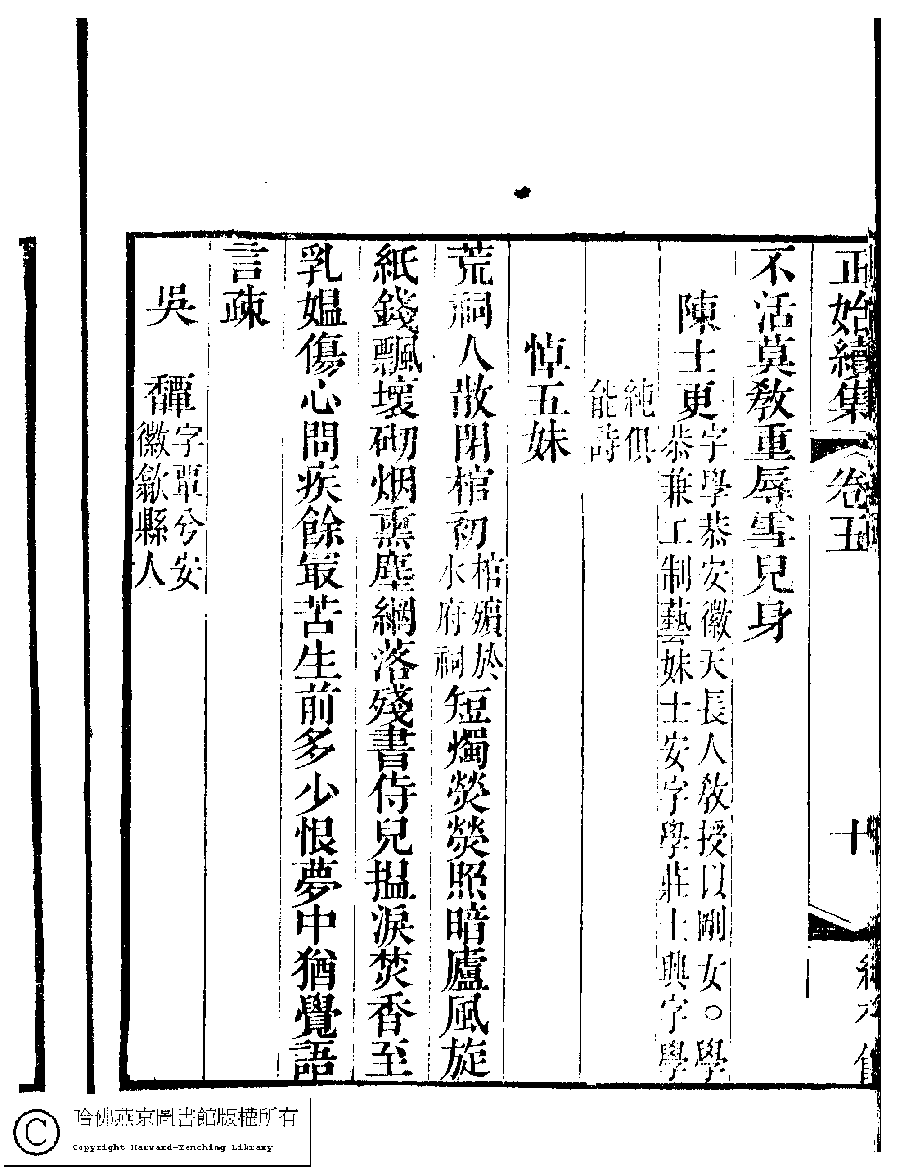 正始續集 卷五 十
不活莫教重辱雪兒身
陳士更字學恭安徽天長人教授以剛女○學
恭兼工制藝妹士安字學莊士興字學
純俱
能詩
悼五妹
荒祠人散閉棺初棺殯於
水府祠短燭熒熒照暗廬風旋
紙錢飄壞砌烟熏塵網落殘書侍兒搵淚焚香至
乳媼傷心問疾餘最苦生前多少恨夢中猶覺語
言疎
吳 字覃兮安
徽歙縣人
哈佛燕京圖書館版權所有
Copyright Harvard-Yenching Library